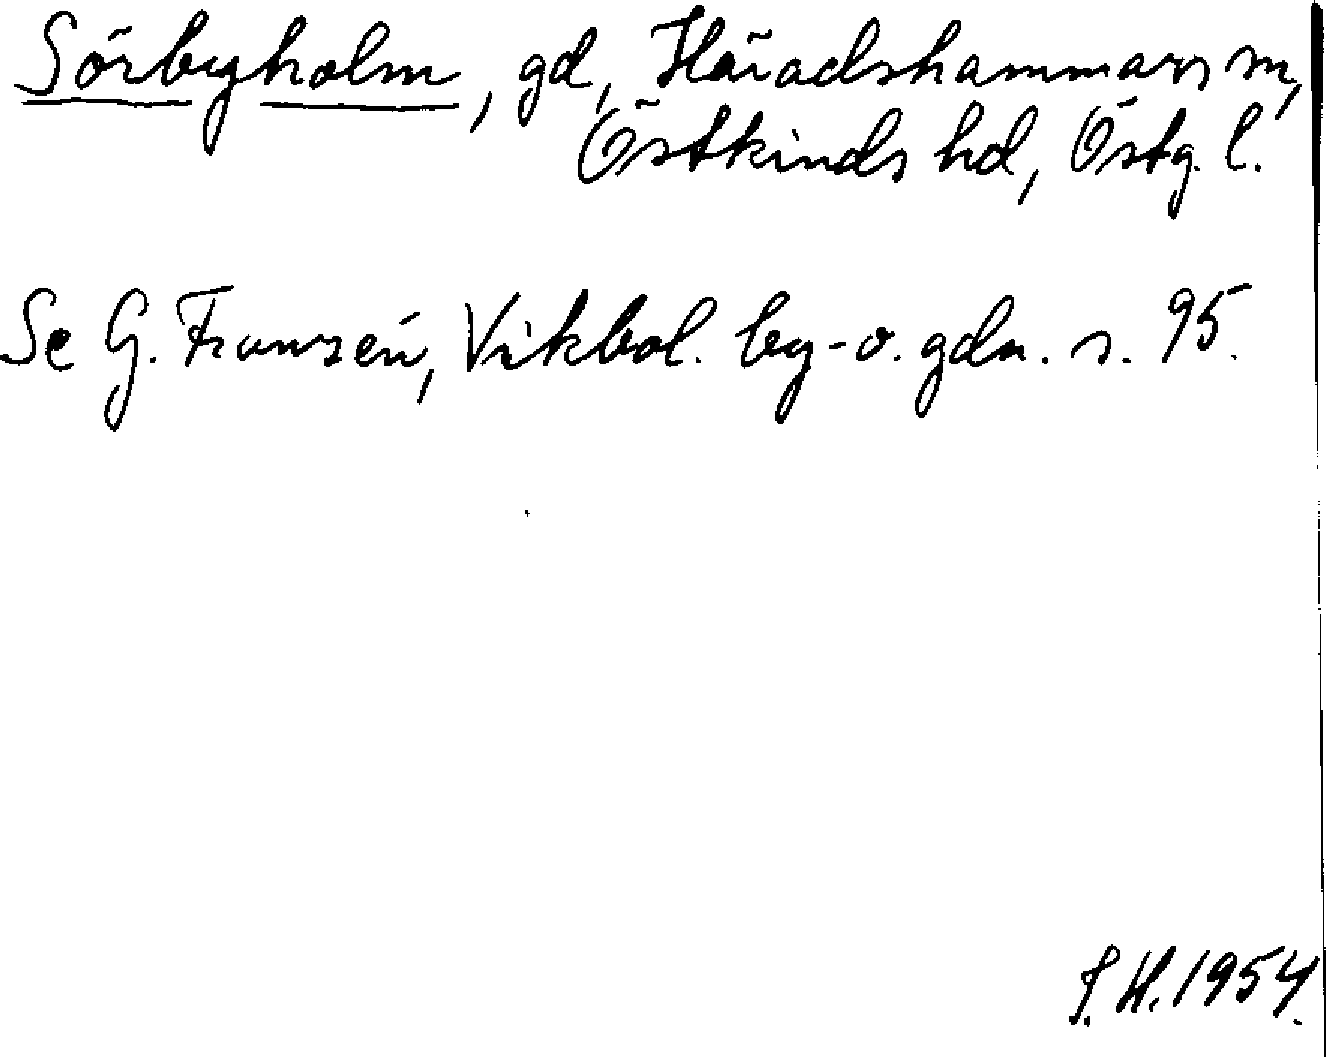 Sörbyholm, gd, Häradshammars sn,
Östkinds hd, Östg. l.
Se G. Franzén, Vikbol. by- o. gdn. s. 95.
S. H. 1954.